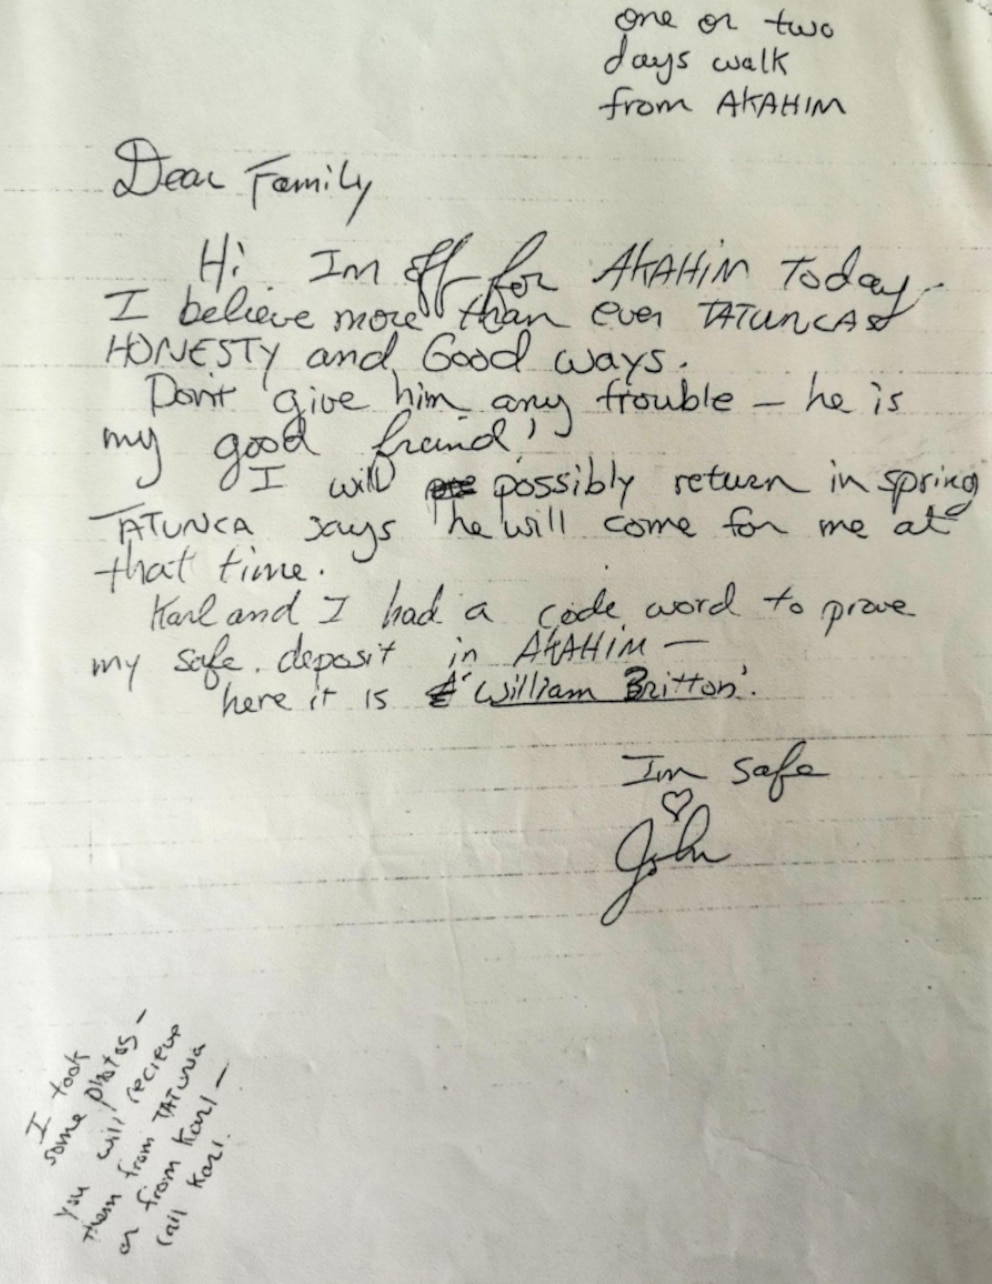 one or two
days walk
from AKAHIM
Dear Family
Hi Im off for AKAHIM Today.
I believe more than ever TATUNCAS
HONESTY and Good ways.
Don't give him any trouble — he is
my good freind!
I will possibly return in spring
TATUNCA says he will come for me at
that time.
Karl and I had a code word to prove
my safe. deposit in AKAHIM —
here it is 'William Britton'.
Im safe
♡
John
I took
some photos —
you will recieve
them from TATUNCA
or from Karl —
Call Karl.